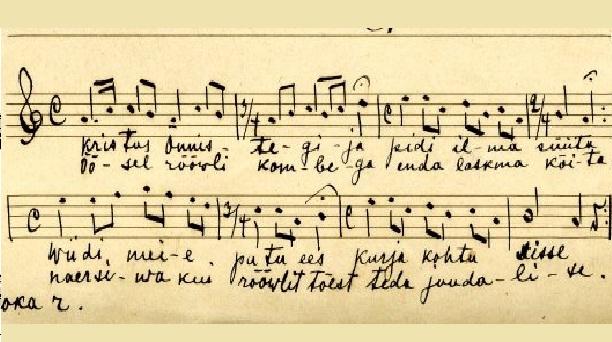 Kristus õnnis - te - gi - ja pidi il - ma süüta
Öö - sel rööwli kom - be - ga enda laskma köi - ta
Wiidi, mei - e. pu ta ees kurja kohtu ette
naersi - wa kui rööwlit tõest teda juuda - li - se.
oka r.